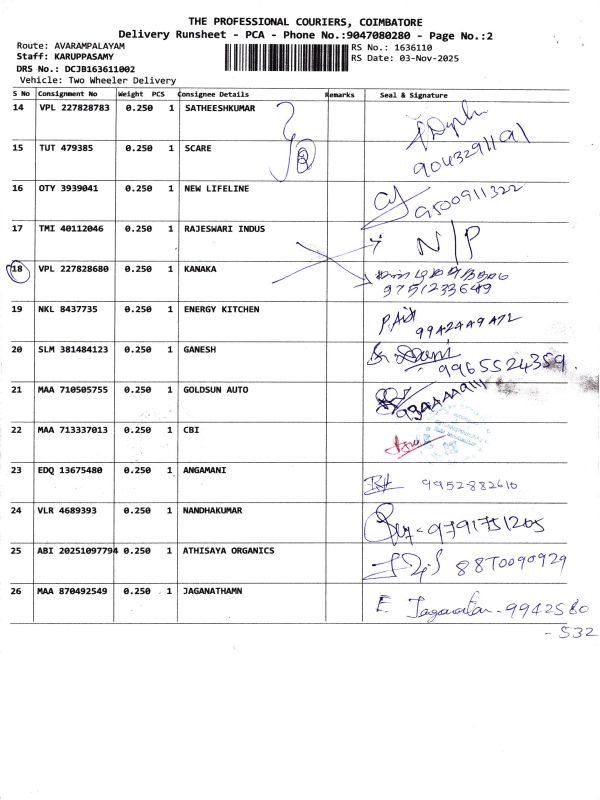 THE PROFESSIONAL COURIERS, COIMBATORE
Delivery Runsheet - PCA - Phone No.:9047080280 - Page No.:2
Route: AVARAMPALAYAM
RS No.: 1636110
Staff: KARUPPASAMY
RS Date: 03-Nov-2025
DRS No.: DCJB163611002
Vehicle: Two Wheeler Delivery
S No Consignment No Weight PCS Consignee Details Remarks Seal & Signature
14 VPL 227828783 0.250 1 SATHEESHKUMAR
9043291191
15 TUT 479385 0.250 1 SCARE
16 OTY 3939041 0.250 1 NEW LIFELINE 9500911322
17 TMI 40112046 0.250 1 RAJESWARI INDUS N/P
18 VPL 227828680 0.250 1 KANAKA
9751233649
19 NKL 8437735 0.250 1 ENERGY KITCHEN 9942449472
20 SLM 381484123 0.250 1 GANESH 9965524359
21 MAA 710505755 0.250 1 GOLDSUN AUTO
22 MAA 713337013 0.250 1 CBI
23 EDQ 13675480 0.250 1 ANGAMANI 9952882610
24 VLR 4689393 0.250 1 NANDHAKUMAR 9791751205
25 ABI 20251097794 0.250 1 ATHISAYA ORGANICS 8870090929
26 MAA 870492549 0.250 1 JAGANATHAMN E. Jaganathan - 9942580
- 532